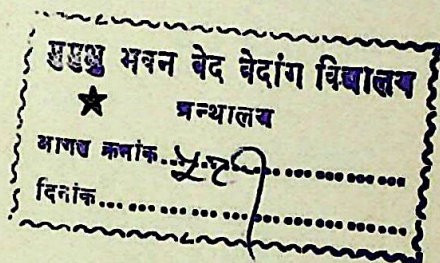 मुमुक्षु भवन वेद वेदांग विद्यालय
ग्रन्थालय
आगत क्रमांक
दिनांक